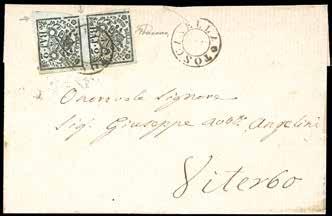 TOSCANELLA
Onorevole Signore
Sig. Giuseppe Avv. Angelini
Viterbo